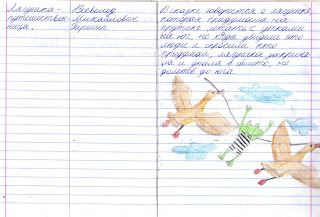 Лягушка-
путешествен-
ница.
Всеволод
Михайлович
Гаршин.
В сказке говорится о лягушке,
которая придумала на
прутике летать с утками
на юг, но когда увидели это
люди и спросили, кто
придумал, лягушка закрича-
ла и упала в болото, не
долетев до юга.